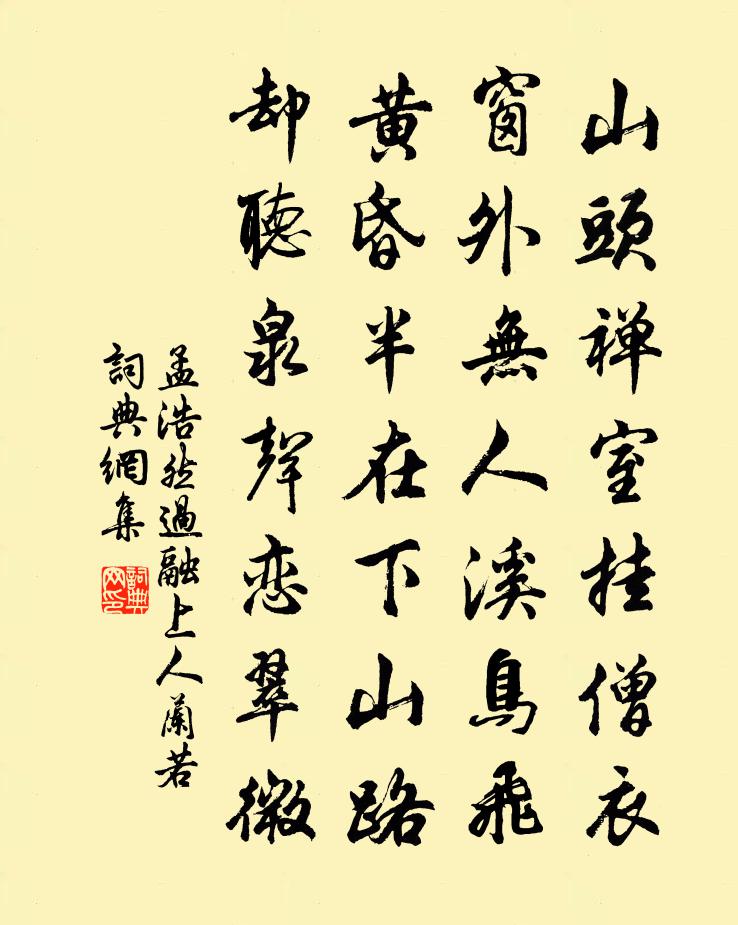 山頭禅室挂僧衣
窗外無人溪鳥飛
黃昏半在下山路
却聽泉聲恋翠微
孟浩然過融上人蘭若
詞典網集
詞典網印